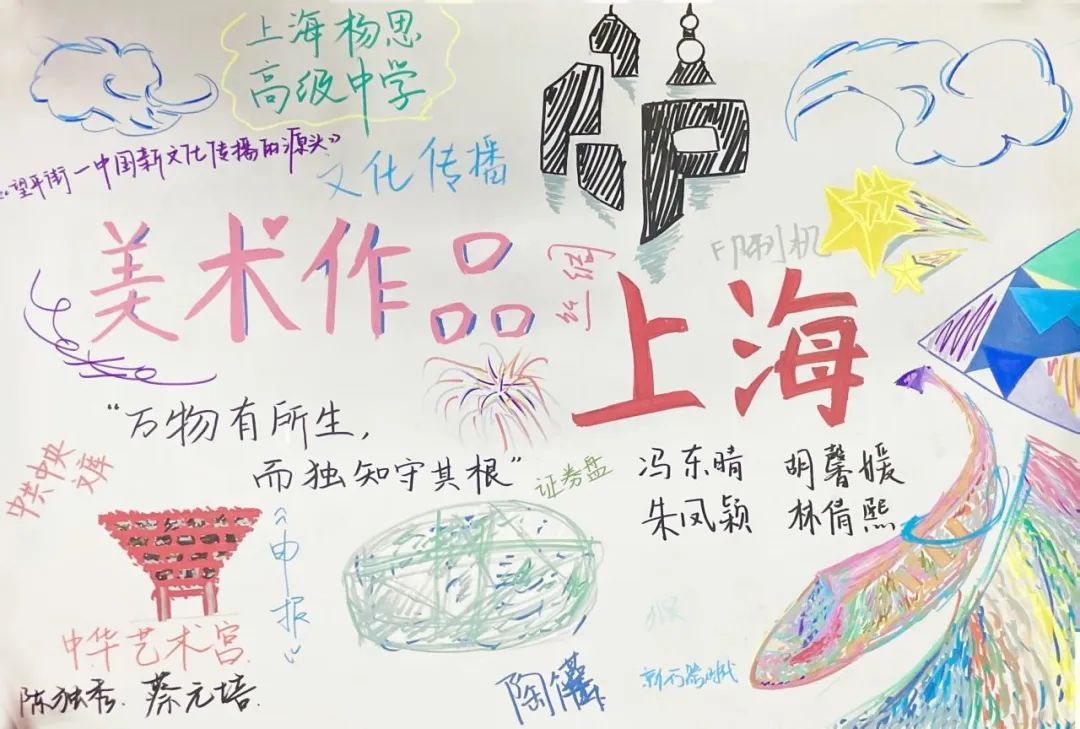 上海杨思
高级中学
《望平街—中国新文化传播的源头》
文化传播
印刷机
美术作品
上海
“万物有所生，
而独知守其根”
证券盘
冯东晴 胡馨媛
朱凤颖 林倩熙
中共中央
文库
《申报》
中华艺术宫
陈独秀. 蔡元培.
陶罐
新石器时代